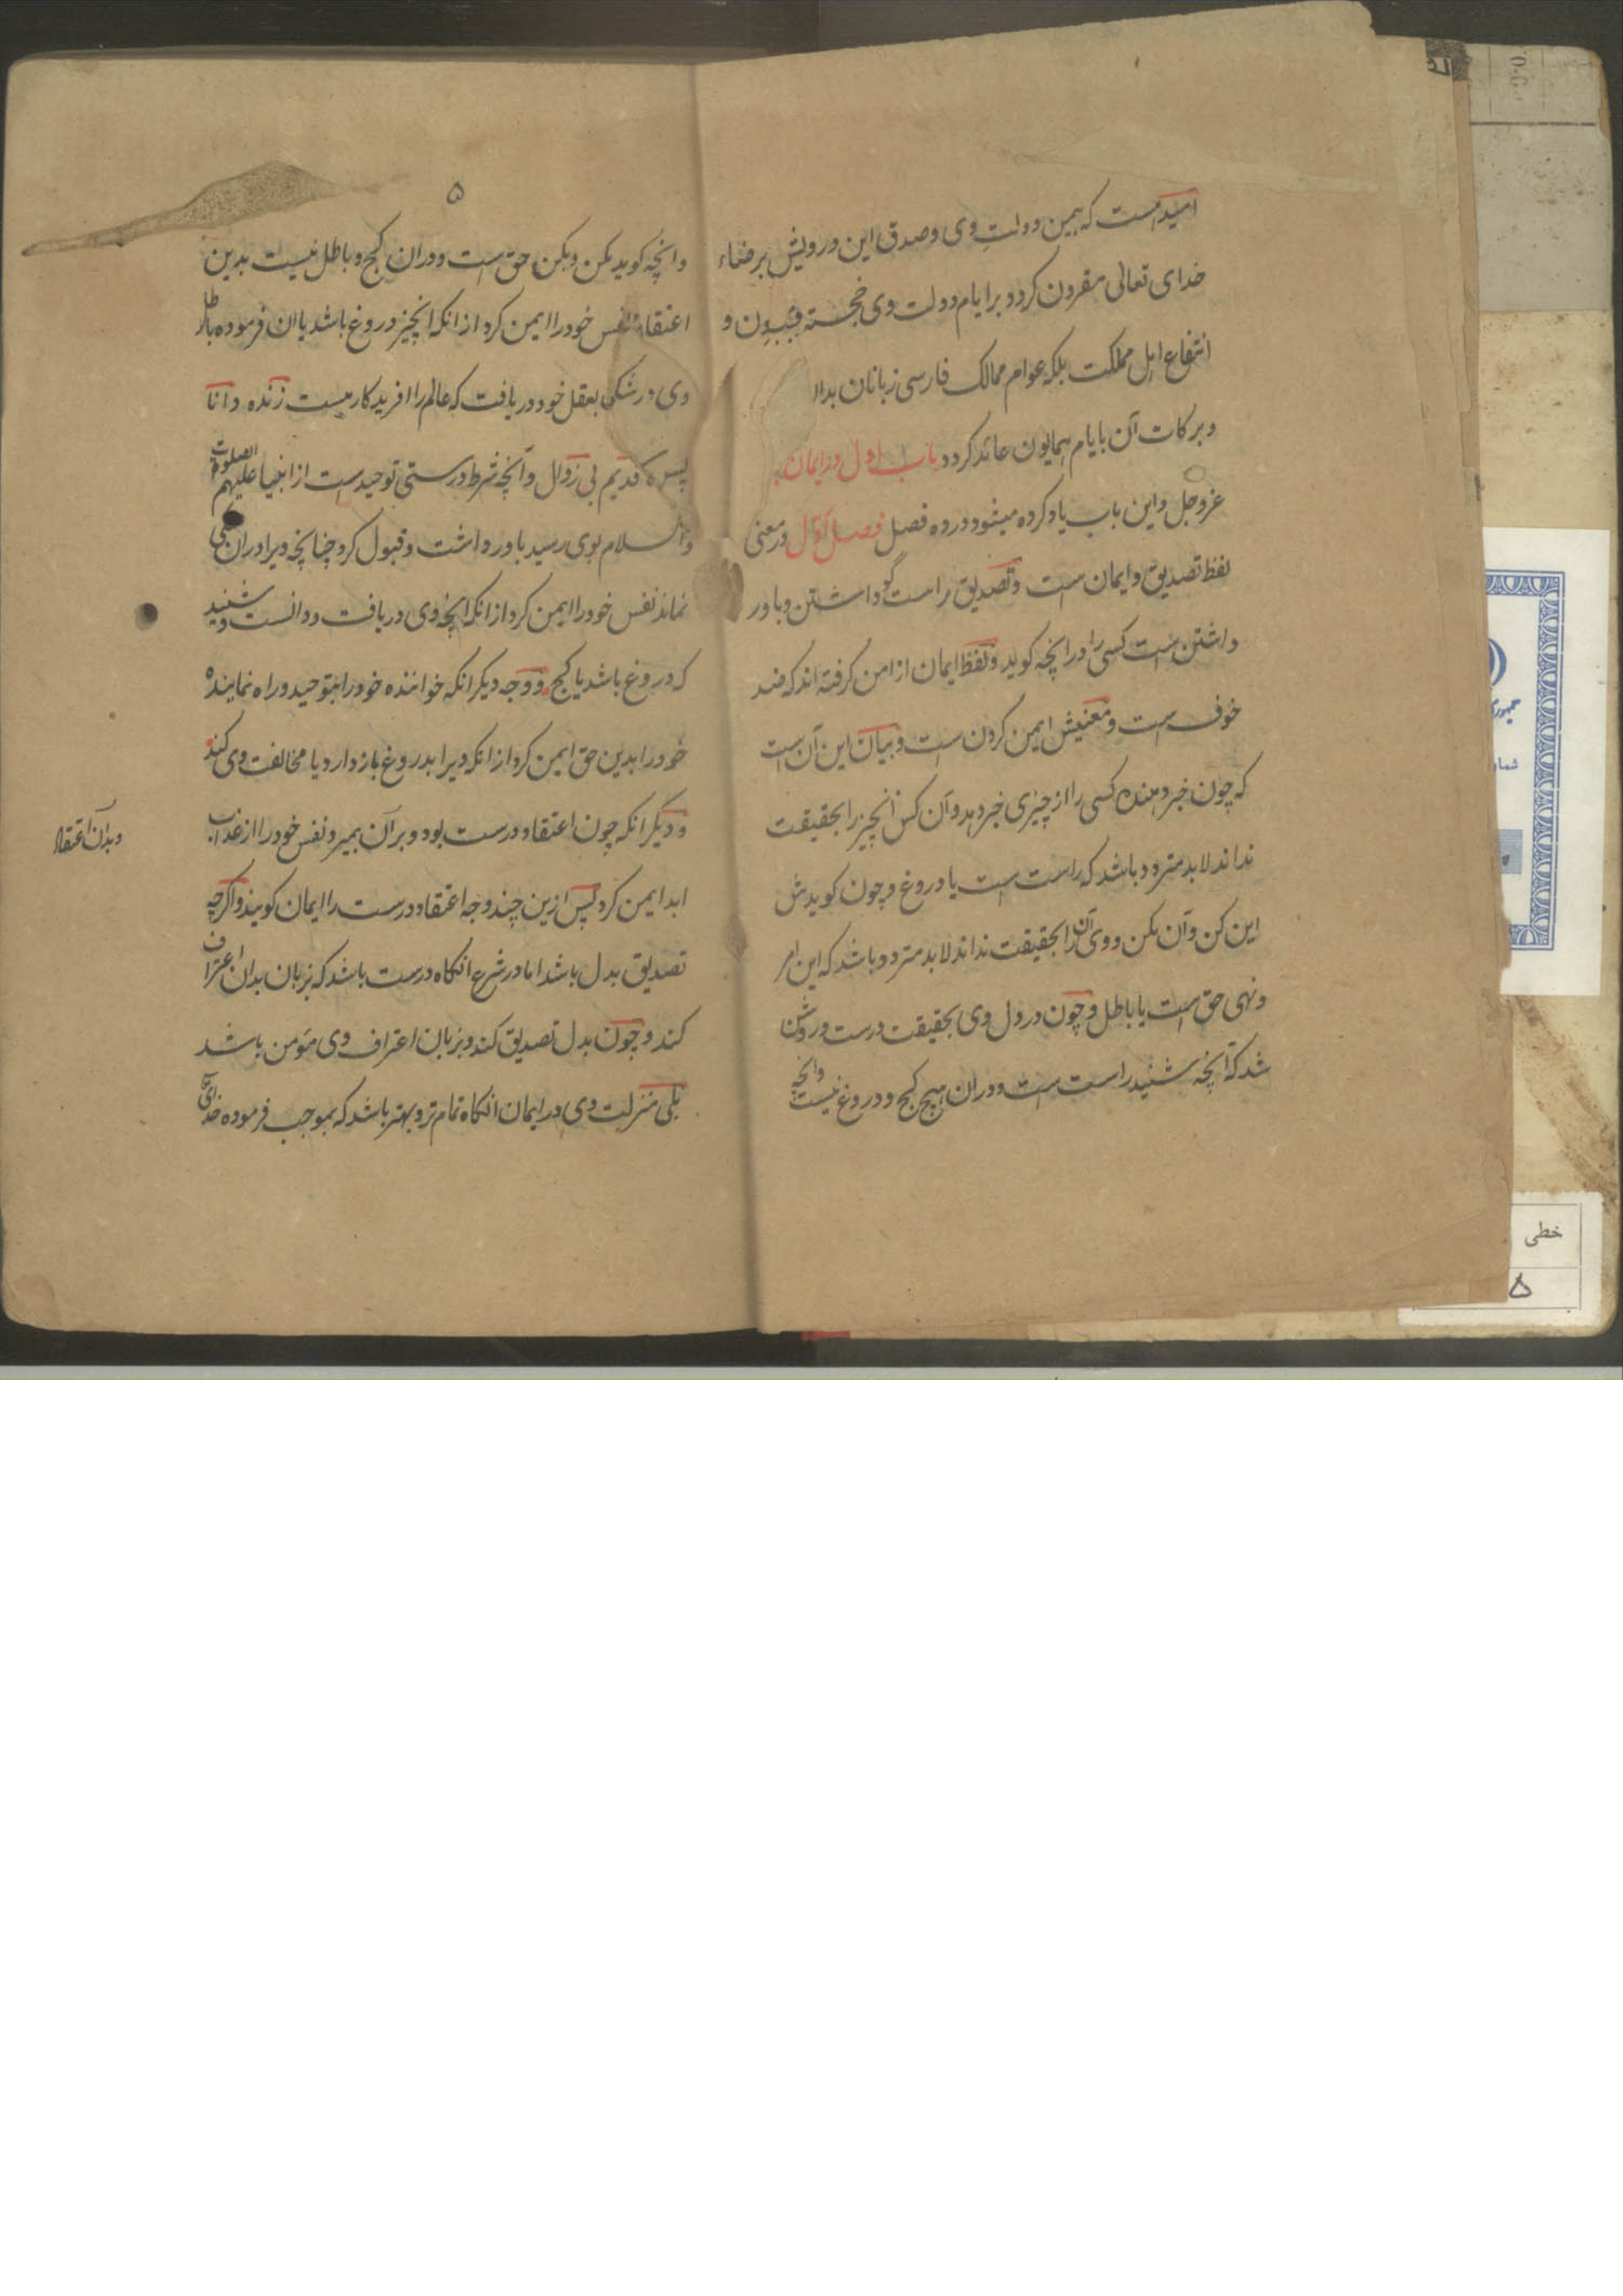 امیدست که بیمن دولتِ وی و صدق این درویش برضاء
خدای تعالی مقرون کردد بر ایام دولت وی خجسته و
انتفاع اهل مملکت بلکه عوام ممالک فارسی زبانان بدا
و برکات آن بایام همایون عائد کردد باب اول در ایمان
عز و جل و این باب یاد کرده میشود در ده فصل فصل اوّل در معنی
لفظ تصدیق و ایمان ست و تصدیق راست گو داشتن و باور
داشتن ست کسی را در انچه کوید و لفظ ایمان از امن کرفته اند که ضد
خوف ست و معنیش ایمن کردن ست و بیان این آن ست
که چون خبر دهنده کسی را از چیزی خبر دهد و آن کس آنچیز را بحقیقت
نداند لابد متردد باشد که راست ست یا دروغ و چون کویدش
این کن و آن مکن و وی آن را بحقیقت نداند لابد متردد باشد که این امر
و نهی حق ست یا باطل و چون در دل وی بحقیقت درست و روشن
شد که آنچه شنید راست ست و در ان هیچ کج و دروغ نیست وانچه
۵
وانچه کوید مکن و بکن حق ست و در ان کج و باطل نیست بدین
اعتقاد نفس خود را ایمن کرد از انکه انچیز دروغ باشد یا ان فرموده باطل
وی در شکی بعقل خود دریافت که عالم را افریدکاریست زنده دانا
پس قدیم بی زوال و آنچه شرط درستی توحید ست از انبیا علیهم الصلوت
والسلام بوی رسید باور داشت و قبول کرد چنانچه ویرا در ان شکی
نماند نفس خود را ایمن کرد از انکه انچه وی دریافت و دانست و شنید
که دروغ باشد یا کج و وجه دیکر انکه خواننده خود را بتوحید و راه نماینده
خود را بدین حق ایمن کرد از انکه ویرا بدروغ باز دارد یا مخالفت وی کند
و دیکر انکه چون اعتقاد درست بود و بر آن بمیرد نفس خود را از عذاب
وبدان اعتقاد
ابد ایمن کرد پس ازین چند وجه اعتقاد درست را ایمان کویند و اکرچه
تصدیق بدل باشد اما در شرع انکاه درست باشد که بزبان بدان اعتراف
کند و چون بدل تصدیق کند و بزبان اعتراف وی مؤمن باشد
بلی منزلت وی در ایمان انکاه تمام تر و بهتر باشد که بموجب فرموده خدای
خطی
۵